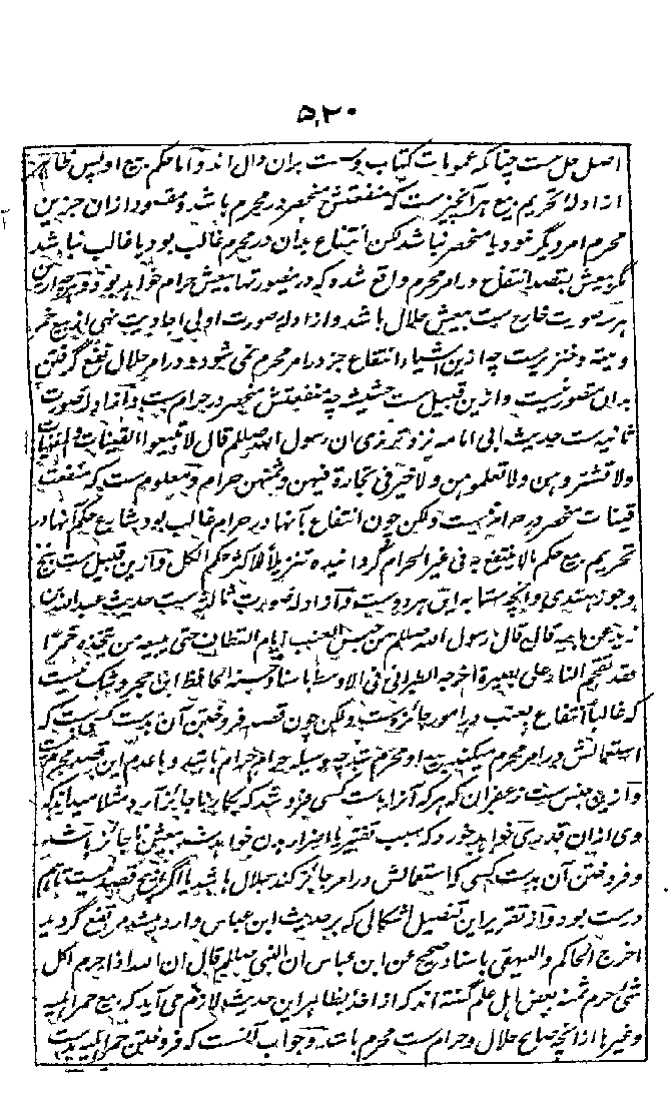 ۵۲۰
اصل حل ست چنانکه عمومات کتاب وسنت بران دال اند و اما حکم بیع او پس ظاهر
از ادله تحریم بیع هر آنچیز ست که منفعتش منحصر در محرم باشد و مقصود ازان جزین
محرم امر دیگر نبود یا منحصر نباشد لکن انتفاع بدان در محرم غالب بود یا غالب نباشد
مگر بیعش بقصد انتفاع در امر محرم واقع شده که درینصورتها بیعش حرام خواهد بود و هرچه ازین
هر سه صورت خارج ست بیعش حلال باشد و از ادله صورت اولی احادیث نهی از بیع خمر
و میته و خنزیر ست چه ازین اشیا انتفاع جز در امر محرم نمی شود و در امر حلال نفع گرفتن
بدان متصور نیست و ازین قبیل ست حشیشه چه منفعتش منحصر در حرام ست و اما ادله صورت
ثانیه ست حدیث ابی امامه نزد ترمذی ان رسول الله صلم قال لا تبیعوا القینات
ولا تشتروهن ولا تعلموهن ولا خیر فی تجارة فیهن وثمنهن حرام و معلوم ست که منفعت
قینات منحصر در حرام نیست ولکن چون انتفاع بآنها در حرام غالب بود شارع حکم آنها در
تحریم بیع حکم ما لا ینتفع به فی غیر الحرام گردانیده تنزیلا للاکثر حکم الکل و ازین قبیل ست بیع
جوز هندی و آنچه مشابه این هر دو ست و از ادله صورت ثالثه ست حدیث عبدالله بن
بریدة عن ابیه قال قال رسول الله صلم من حبس العنب ایام القطاف حتی یبیعه ممن یتخذه خمرا
فقد تقحم النار علی بصیرة اخرجه الطبرانی فی الاوسط باسناد حسنه الحافظ ابن حجر و شک نیست
که غالبا انتفاع بعنب در امور جائزه ست ولکن چون قصد فروختن آن بدست کسی ست که
استعمالش در امر محرم میکند بیع او محرم شد چه وسیله حرام حرام باشد و با عدم این قصد محرم نیست
و ازین جنس ست زعفران که هرکه آنرا بدست کسی فروشد که بکار ناجائز آرد مثلا میداند که
وی ازان قدری خواهد خورد که سبب تفتیر یا اضرار بدن خواهد شد بیعش ناجائز باشد
و فروختن آن بدست کسی که استعمالش در امر جائز کند حلال باشد یا اگر هیچ قصد نیست تا هم
درست بود و از تقریر این تفصیل اشکالی که بر حدیث ابن عباس وارد میشد مرتفع گردید
اخرج الحاکم والبیهقی باسناد صحیح عن ابن عباس ان النبی صلم قال ان الله اذا حرم اکل
شیء حرم ثمنه بعض اهل علم گفته اند که از اخذ بظاهر این حدیث لازم می آید که بیع حمر اهلیه
و غیرها از آنچه صالح حلال و حرام ست محرم باشد و جواب آنست که فروختن حمر اهلیه بدست